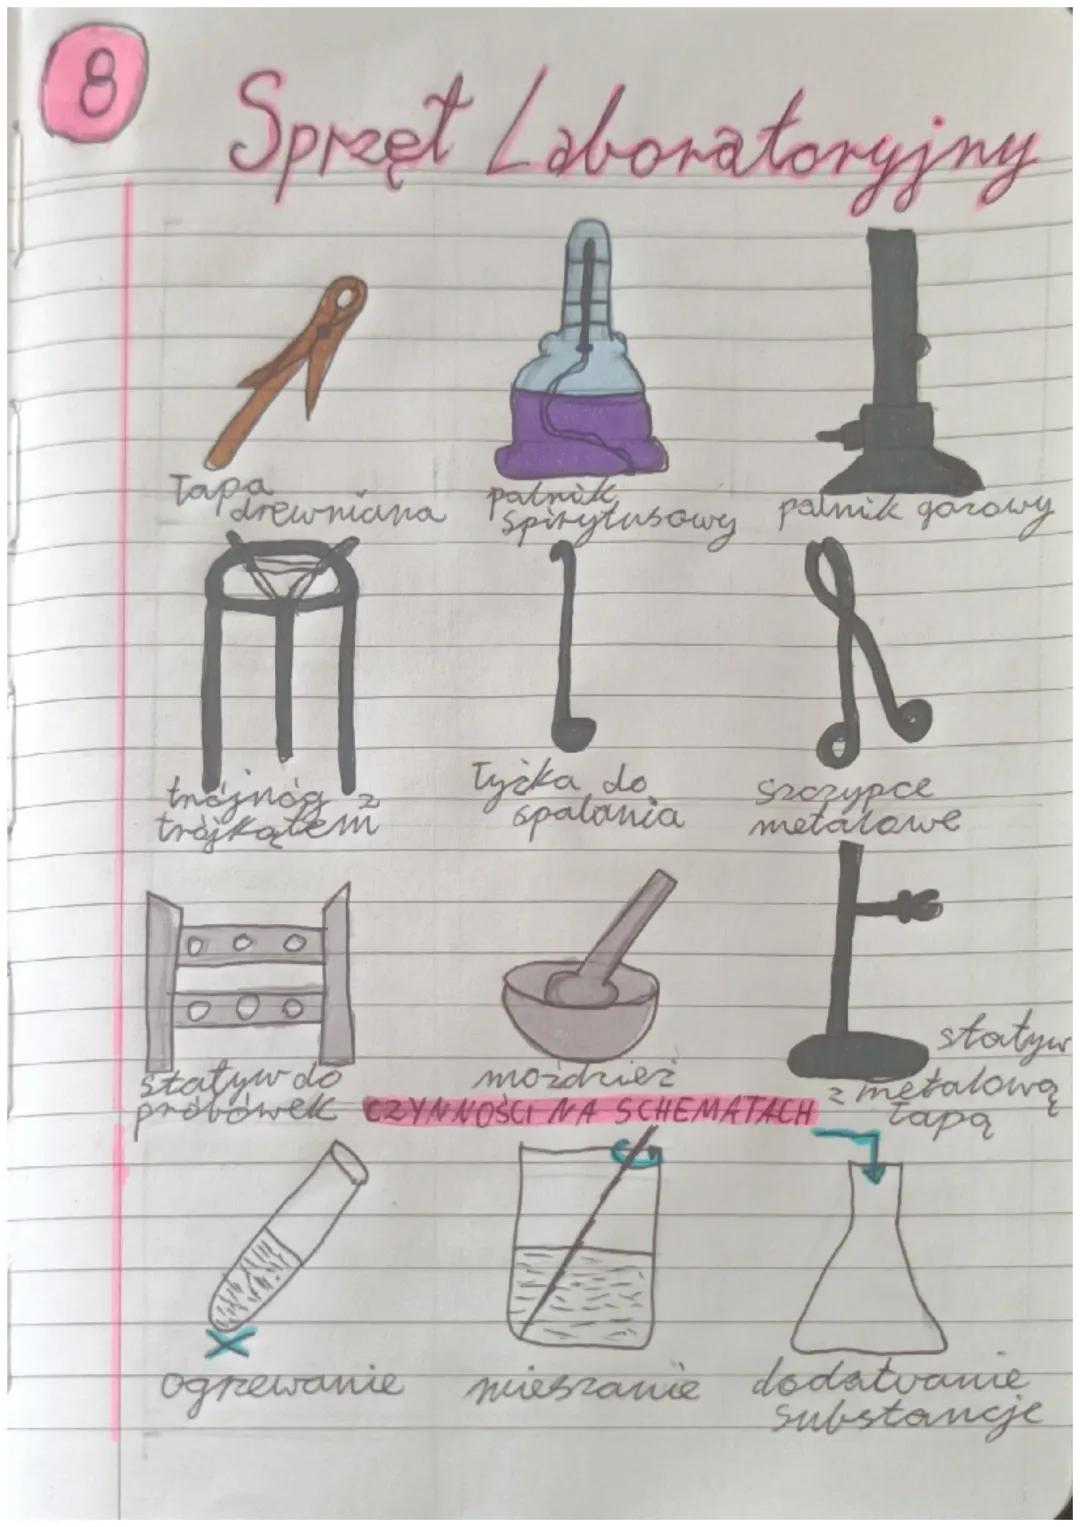 8
Sprzęt Laboratoryjny
Łapa
drewniana
palnik
spirytusowy
palnik gazowy
trójnóg z
trójkątem
Łyżka do
spalania
szczypce
metalowe
statyw do
probówek
moździeż
statyw
z metalową
łapą
CZYNNOŚCI NA SCHEMATACH
ogrzewanie
mieszanie
dodatvanie
substancje